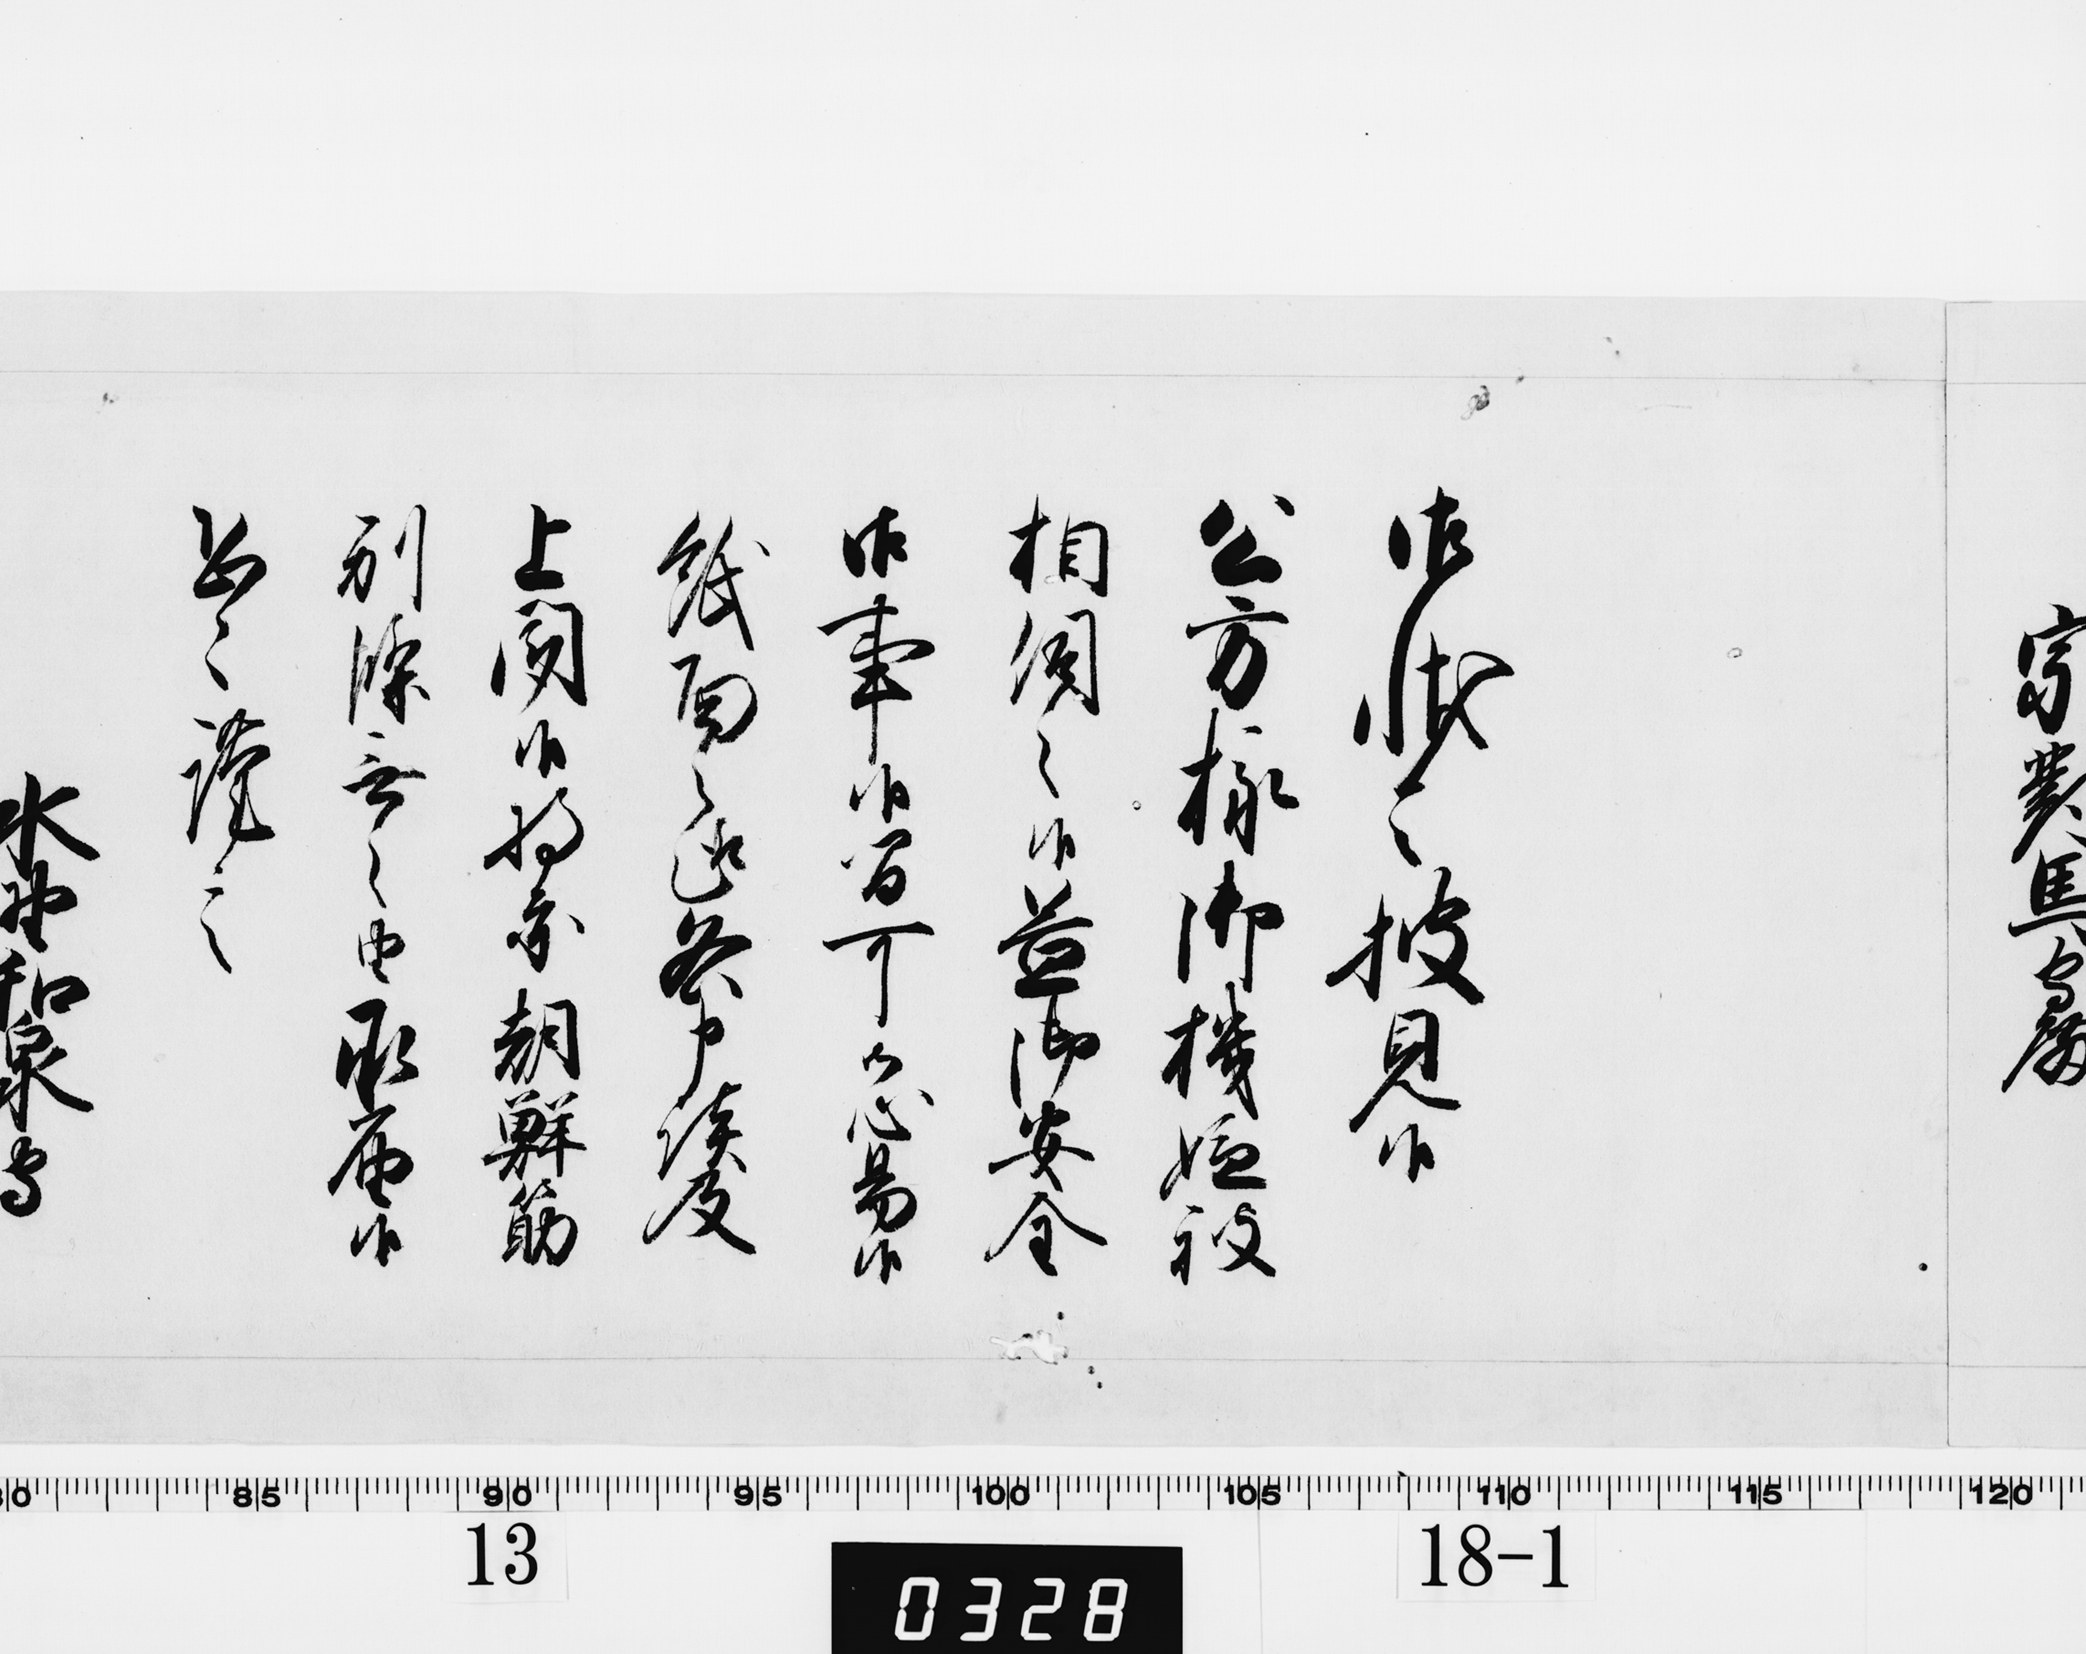 宗對馬守殿
御状令披見候
公方様御機嫌被
相伺之候益御安全
御事候間可御心易候
紙面之趣各申談及
上聞候将亦朝鮮筋
別條無之由承届候
恐々謹言
水野和泉守
80 85 90 95 100 105 110 115 120
13 18-1
0328